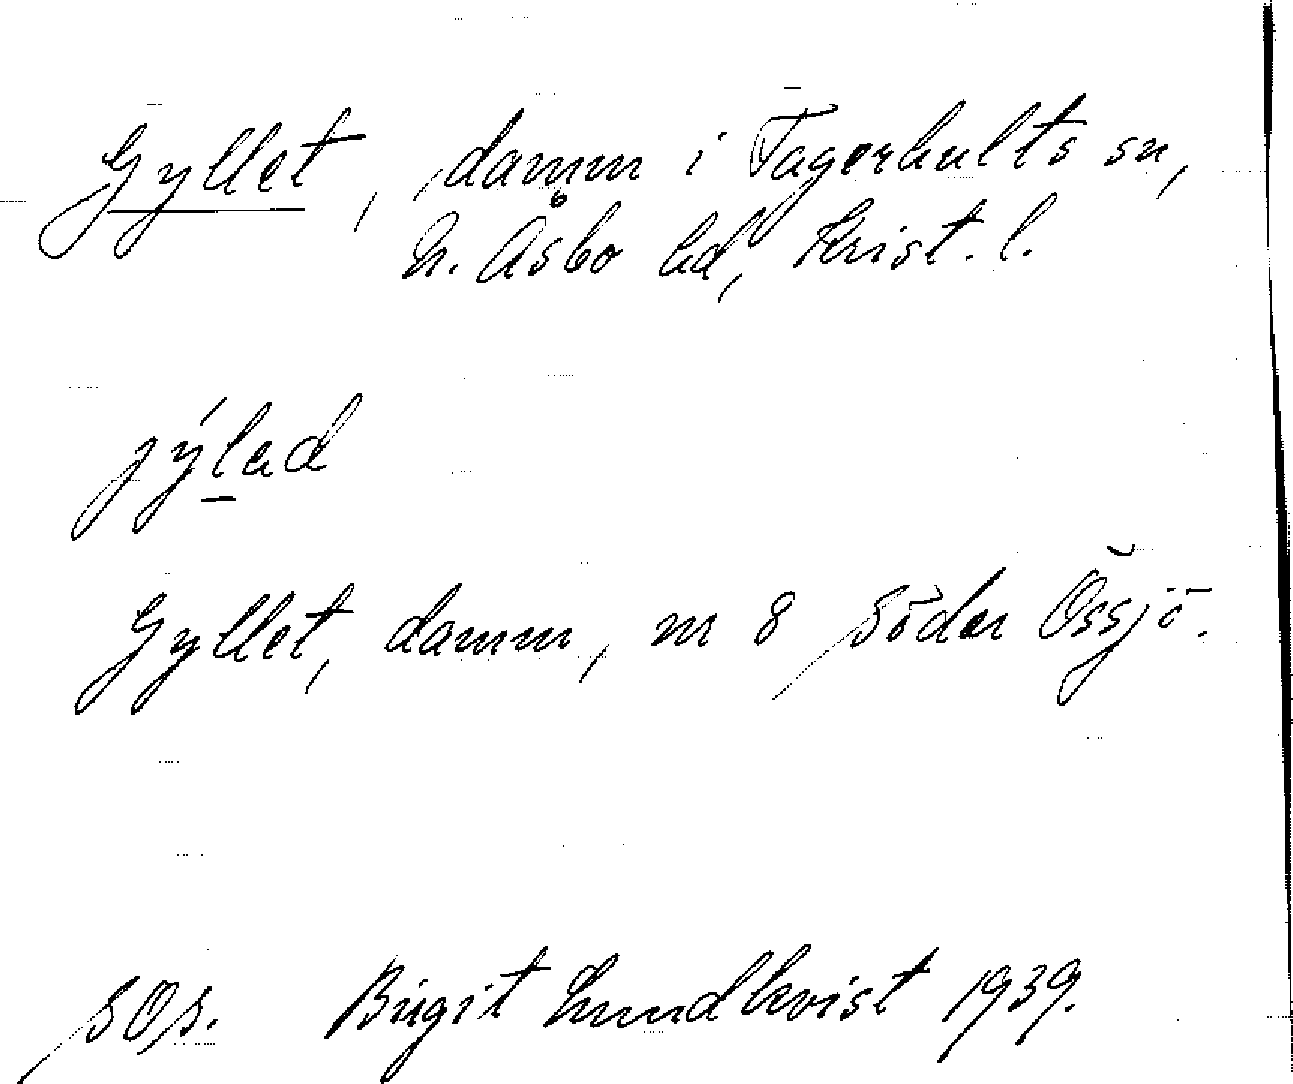 Gyllet, damm i Tågerhults sn,
N. Åsbo hd, Krist. l.
jýlad
Gyllet, damm, nr 8 Söder Össjö.
SOs. Birgit Lundkvist 1939.